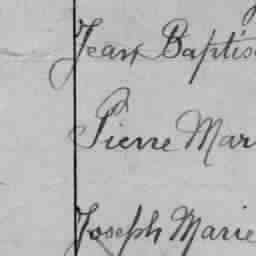 Jean Baptis
Pierre Mar
Joseph Marie